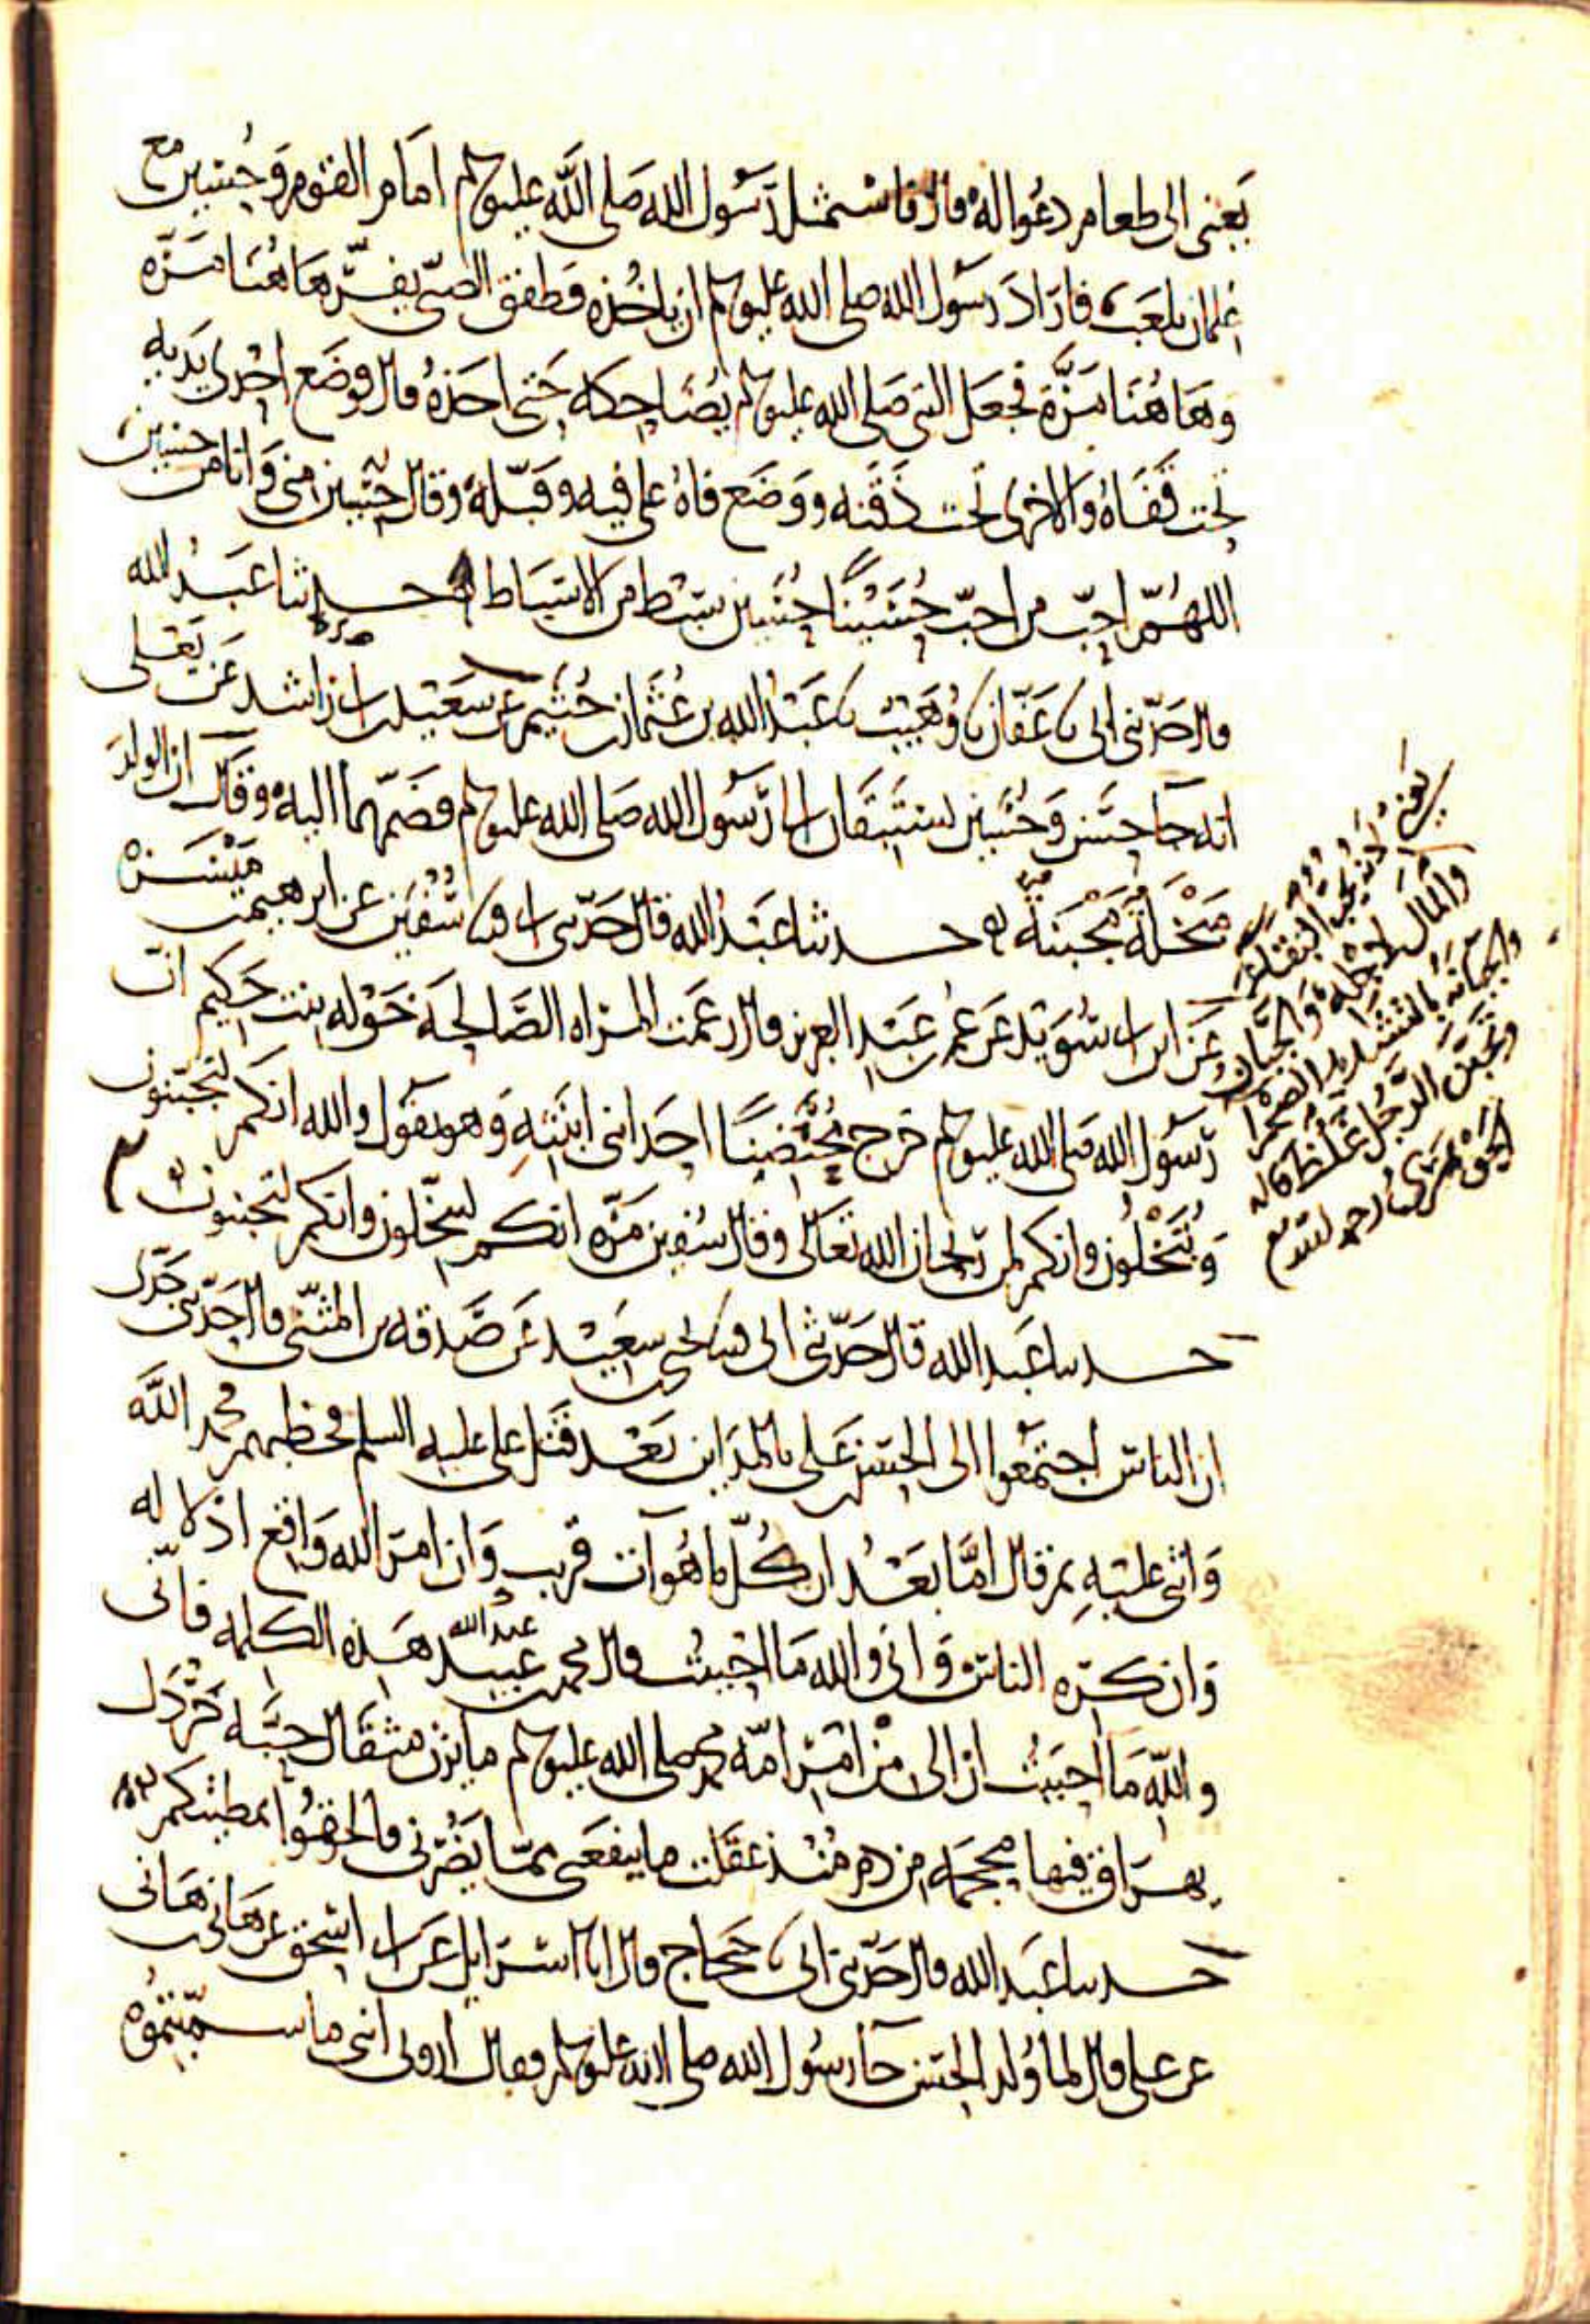 يعنى الى طعام دعوا له قال فاستمثل رسول الله صلى الله عليه وسلم امام القوم وحسين مع
غلمان يلعب فاراد رسول الله صلى الله عليه وسلم ان ياخذه فطفق الصبى يفر هاهنا مره
وهاهنا مرة فجعل النبى صلى الله عليه وسلم يضاحكه حتى اخذه قال فوضع احدى يديه
تحت قفاه والاخرى تحت ذقنه ووضع فاه على فيه وقبله وقال حسين منى وانا من حسين
اللهم احب من احب حسينا حسين سبط من الاسباط حدثنا عبد الله
قال حدثنى ابى نا عفان نا وهيب نا عبد الله بن عثمان بن خثيم عن سعيد بن ابى راشد عن يعلى
انه جا حسن وحسين يستبقان الى رسول الله صلى الله عليه وسلم فضمهما اليه وقال ان الولد
مبخلة مجبنة حدثنا عبد الله قال حدثنى ابى قثنا سفين عن ابرهيم بن ميسره
عن ابن ابى سويد عن عمر بن عبد العزيز قال زعمت المراه الصالحة خوله بنت حكيم ان
رسول الله صلى الله عليه وسلم خرج محتضنا احد ابنى ابنته وهو يقول والله انكم لتجبنون
وتبخلون وانكم لمن ريحان الله تعالى وقال سفين مره انكم لتبخلون وانكم لتجبنون
حدثنا عبد الله قال حدثنى ابى قثنا يحيى بن سعيد عن صدقه بن المثنى قال حدثنى جدى
ان الناس اجتمعوا الى الحسن بن على بالمداين بعد قتل على عليه السلم فخطبهم فحمد الله
واثنى عليه ثم قال اما بعد ان كل ما هو ات قريب وان امر الله واقع اذلاله
وان كره الناس وانى والله ما احببت قال محمد بن عبيد هذه الكلمه فانى
عبد الله
والله ما احببت ان الى من امر امة محمد صلى الله عليه وسلم ما يزن مثقال حبه خردل
يهراق فيها محجمه من دم منذ عقلت ما ينفعنى مما يضرنى فالحقوا بمطيتكم
حدثنا عبد الله قال حدثنى ابى نا حجاج قال انا اسرايل عن ابى اسحق عن هانى بن هانى
عن على قال لما ولد الحسن جا رسول الله صلى الله عليه وسلم فقال ارونى ابنى ما سميتموه
والمال لاجله والجبان
والجبانه بالتشديد الصحرا
وتجبن الرجل غلظ قاله